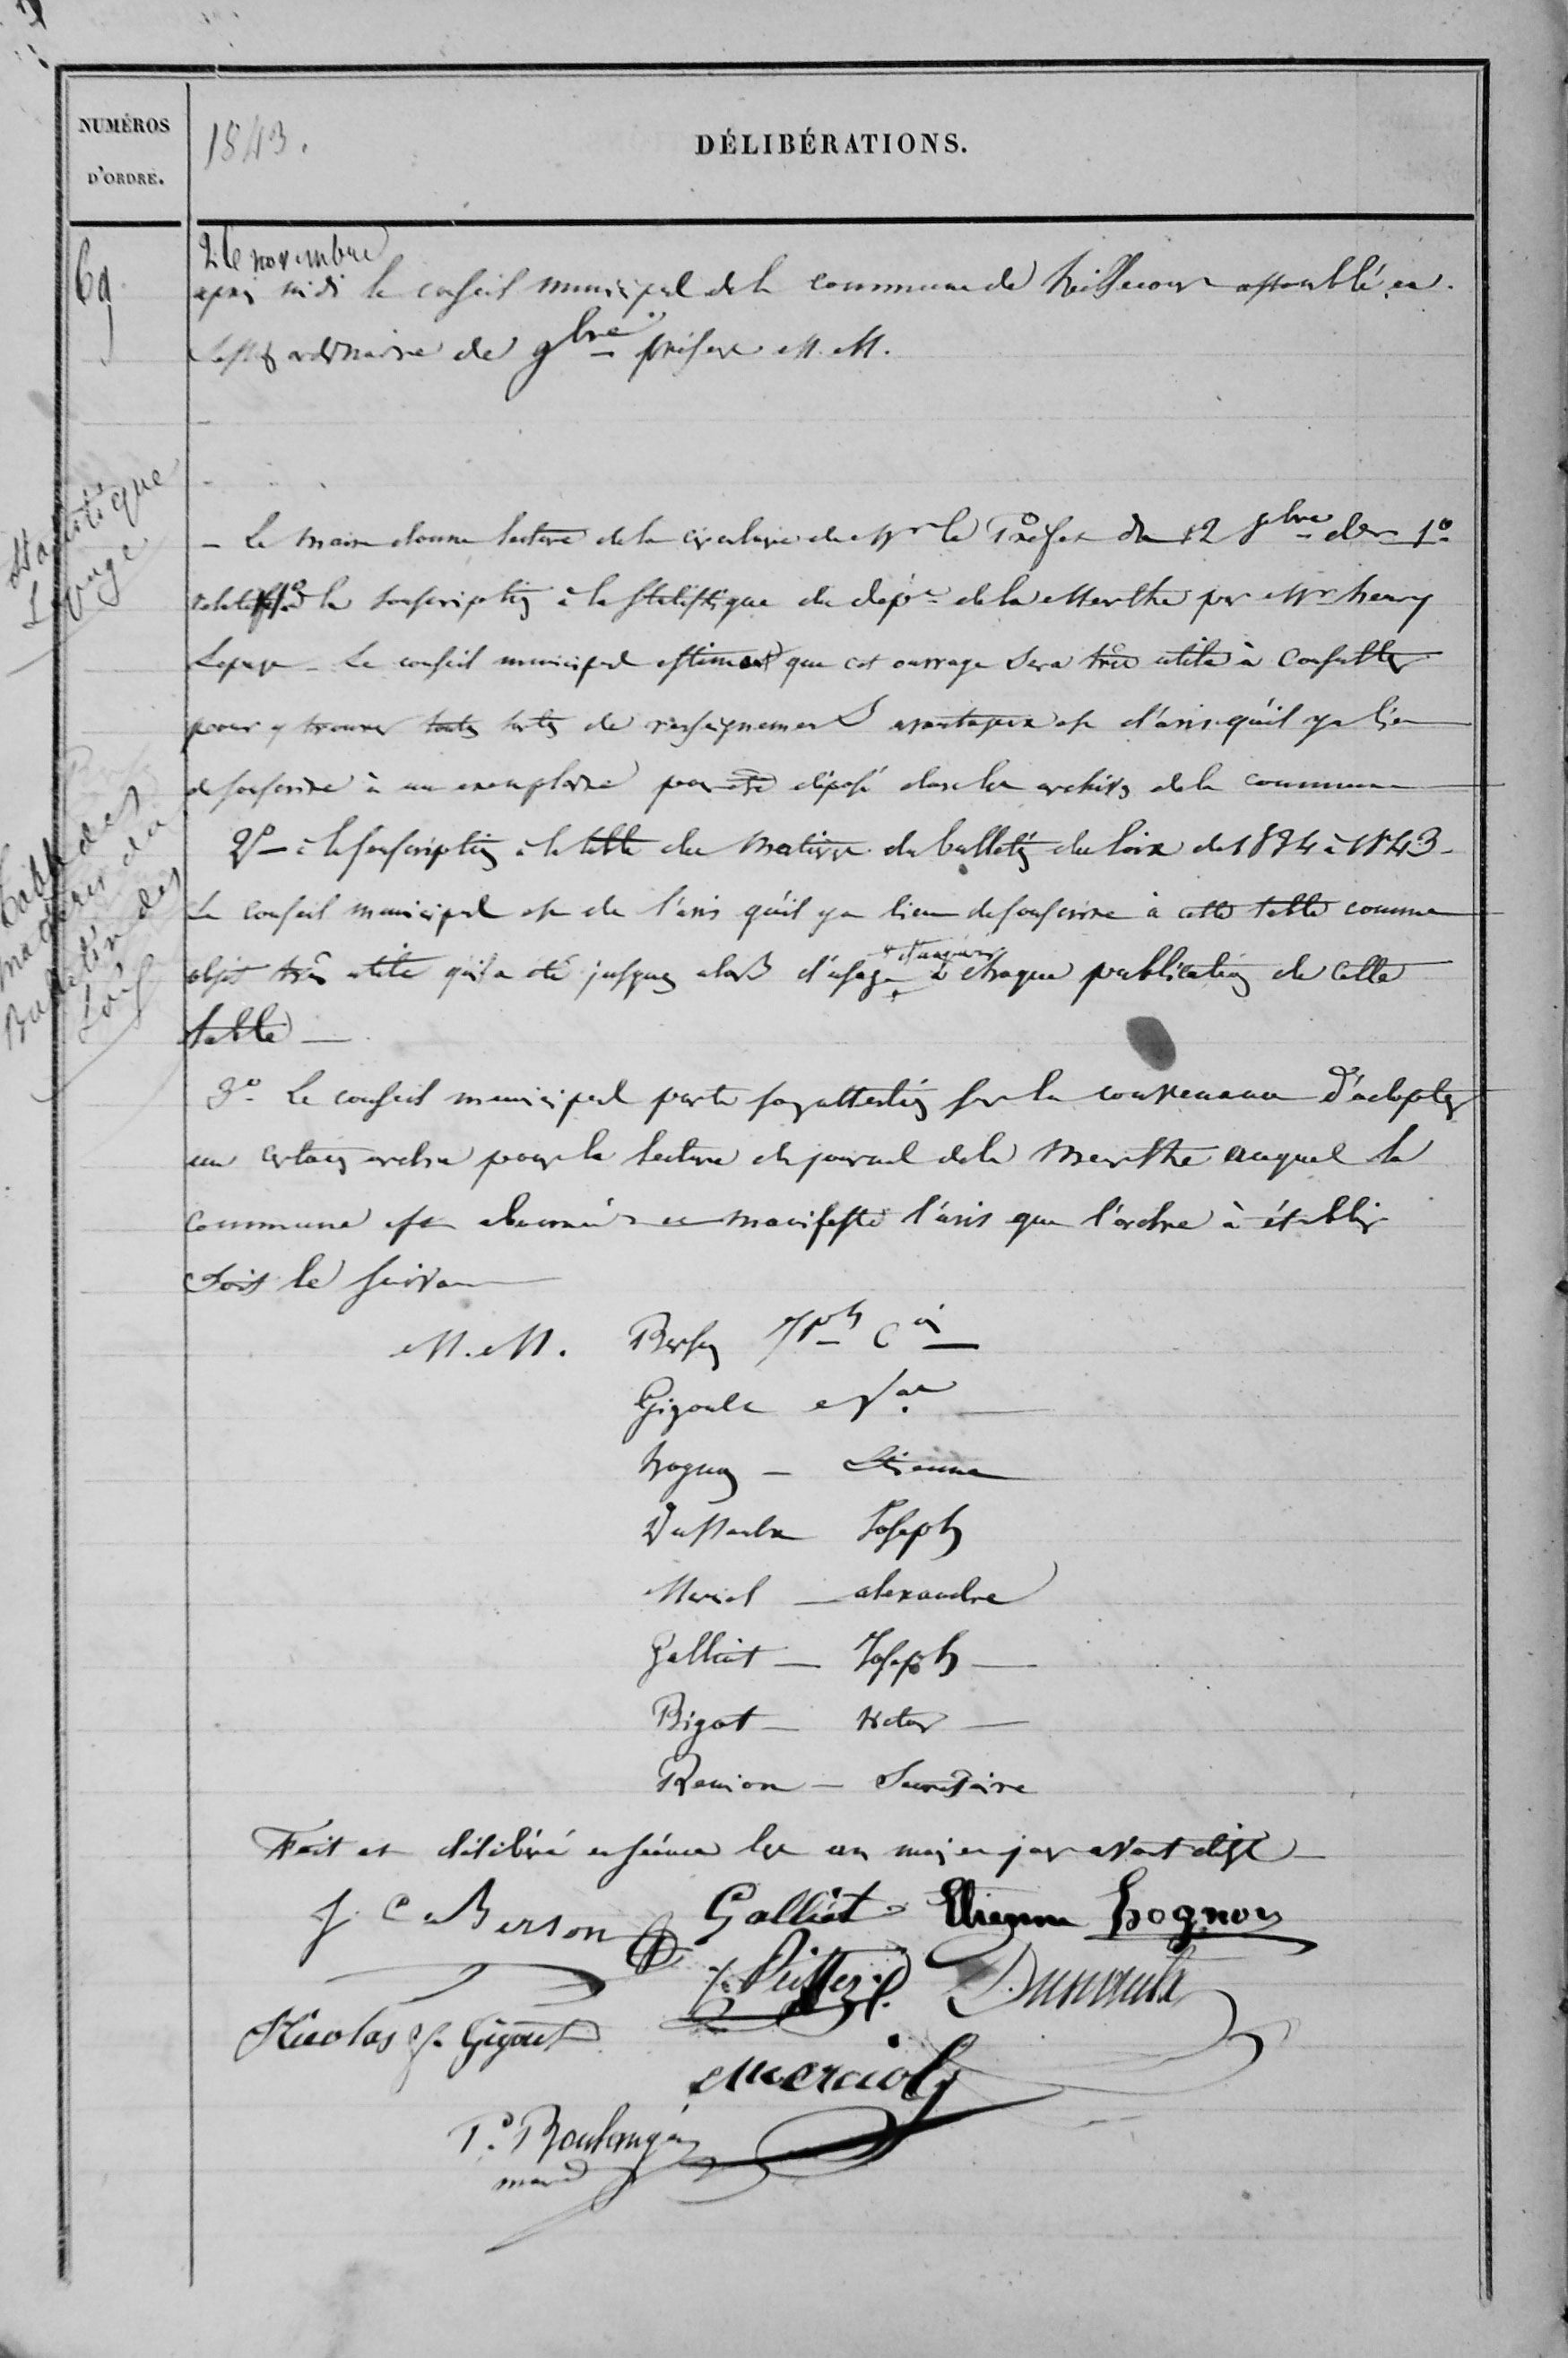 NUMÉROS
D'ORDRE.
1843.
DÉLIBÉRATIONS.
69
26 novembre
après midi le conseil municipal de la commune de heillecourt assemblé en
session ordinaire de 9bre présens M.M.
Statistique
Lepage
- Le Maire donne lecture de la circulaire de Mr le Préfet du 12 8bre der 1º
relative à la souscription à la Statistique du dépt de la Meurthe par Mr henry
Lepage - Le conseil municipal estimant que cet ouvrage sera très utile à consulter
pour y trouver toutes sortes de renseignemens avantageux est d'avis qu'il y a lieu
de souscrire à un exemplaire pour être déposé dans les archives de la commune
Table des
matières du
Bulletin des
Lois
2º à la souscription à la table des Matières du bulletin des loix de 1834 à 1843 -
Le conseil municipal est de l'avis qu'il y a lieu de souscrire à cette table comme
objet très utile qu'il a été jusques alors d'usage à chaque publication de cette
table
3º Le conseil municipal porte son attention sur la convenance d'adopter
un certain ordre pour la lecture du journal de la Meurthe auquel la
commune est abonnée et manifeste l'avis que l'ordre à établir
soit le suivant
M.M. Berson Jph
Gigoult
hognon - Etienne
Dussaulx Joseph
Merciol - alexandre
Galliot - Joseph
Bigot - victor
Renion - Secrétaire
Fait et délibéré en séance les an mois et jour avant dits
J. C Berson Galliot Etienne hognon
Nicolas f. Gigout
Merciol
P. Boulangé